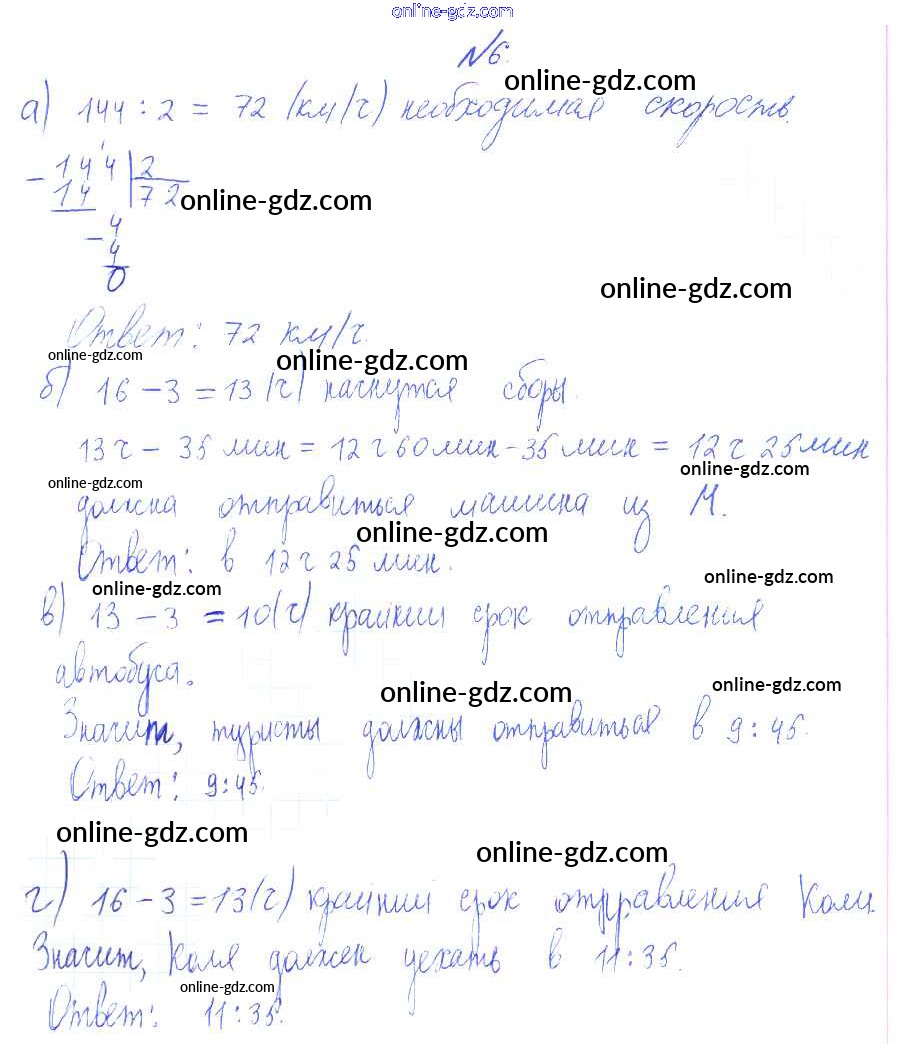 online-gdz.com
№6.
online-gdz.com
а) 144 : 2 = 72 (км/ч) необходимая скорость.
- 144 | 2
14 72 online-gdz.com
- 4
4
0
online-gdz.com
Ответ: 72 км/ч.
online-gdz.com online-gdz.com
б) 16 - 3 = 13 (ч) начнутся сборы.
13 ч - 35 мин = 12 ч 60 мин - 35 мин = 12 ч 25 мин
online-gdz.com online-gdz.com
должна отправиться машина из М.
online-gdz.com
Ответ: в 12 ч 25 мин.
online-gdz.com online-gdz.com
в) 13 - 3 = 10 (ч) крайний срок отправления
автобуса.
online-gdz.com online-gdz.com
Значит, туристы должны отправиться в 9:45.
Ответ: 9:45.
online-gdz.com online-gdz.com
г) 16 - 3 = 13 (ч) крайний срок отправления Коли.
Значит, Коля должен уехать в 11:35.
online-gdz.com
Ответ: 11:35.